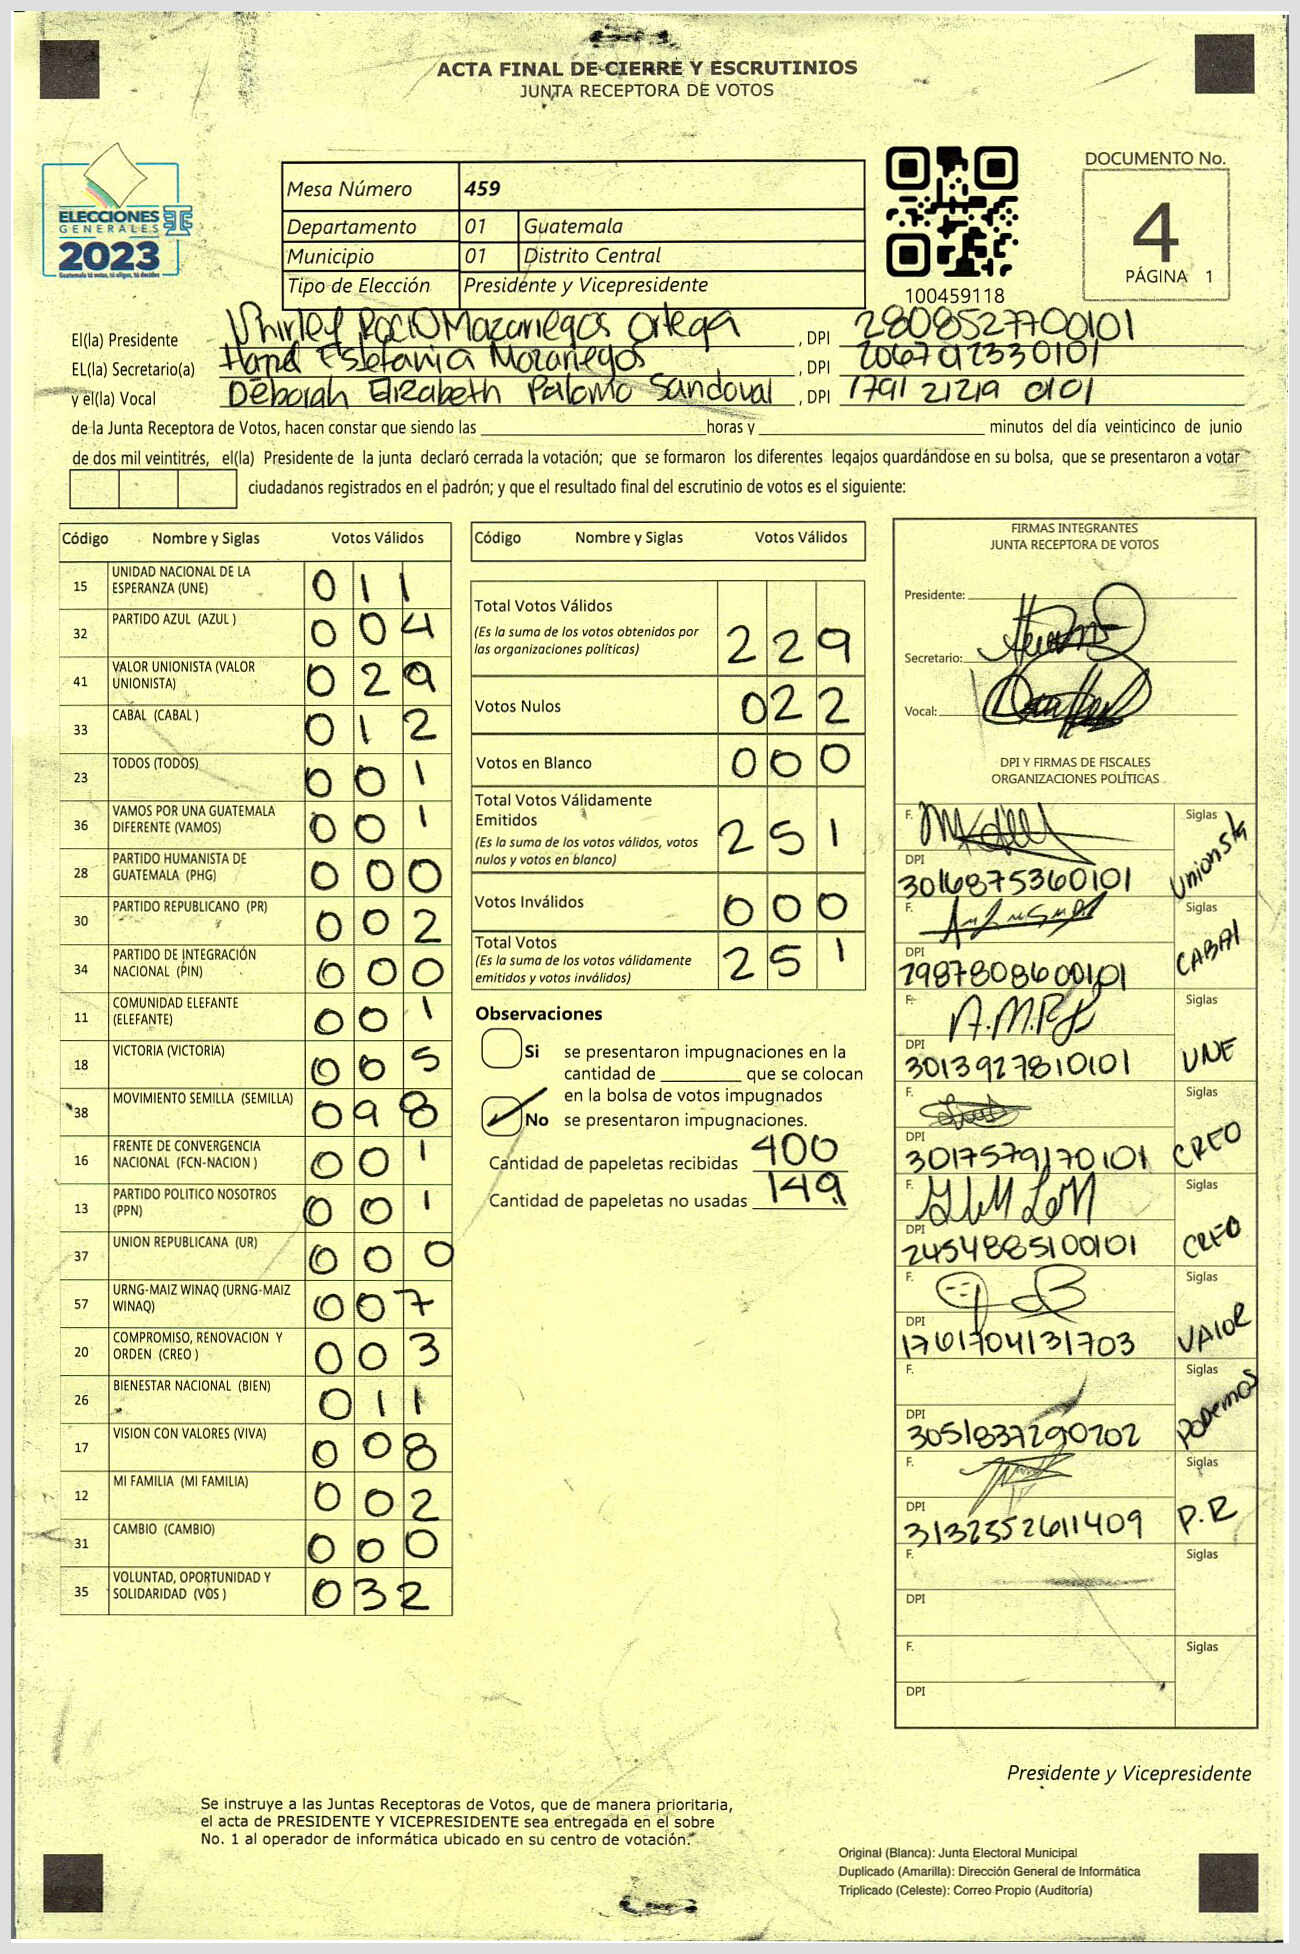 ACTA FINAL DE CIERRE Y ESCRUTINIOS
JUNTA RECEPTORA DE VOTOS
ELECCIONES
GENERALES
2023
Guatemala tú votas, tú eliges, tú decides
Mesa Número 459
Departamento 01 Guatemala
Municipio 01 Distrito Central
Tipo de Elección Presidente y Vicepresidente
100459118
DOCUMENTO No.
4
PÁGINA 1
El(la) Presidente Shirley Rocio Mazariegos Ortega , DPI 2808527700101
EL(la) Secretario(a) Estefania Mazariegos , DPI 2067012330101
y el(la) Vocal Déborah Elizabeth Palomo Sandoval , DPI 1791 21219 0101
de la Junta Receptora de Votos, hacen constar que siendo las horas y minutos del día veinticinco de junio
de dos mil veintitrés, el(la) Presidente de la junta declaró cerrada la votación; que se formaron los diferentes legajos guardándose en su bolsa, que se presentaron a votar
ciudadanos registrados en el padrón; y que el resultado final del escrutinio de votos es el siguiente:
Código Nombre y Siglas Votos Válidos
15 UNIDAD NACIONAL DE LA ESPERANZA (UNE) 011
32 PARTIDO AZUL (AZUL ) 004
41 VALOR UNIONISTA (VALOR UNIONISTA) 029
33 CABAL (CABAL ) 012
23 TODOS (TODOS) 001
36 VAMOS POR UNA GUATEMALA DIFERENTE (VAMOS) 001
28 PARTIDO HUMANISTA DE GUATEMALA (PHG) 000
30 PARTIDO REPUBLICANO (PR) 002
34 PARTIDO DE INTEGRACIÓN NACIONAL (PIN) 000
11 COMUNIDAD ELEFANTE (ELEFANTE) 001
18 VICTORIA (VICTORIA) 005
38 MOVIMIENTO SEMILLA (SEMILLA) 098
16 FRENTE DE CONVERGENCIA NACIONAL (FCN-NACION ) 001
13 PARTIDO POLITICO NOSOTROS (PPN) 001
37 UNION REPUBLICANA (UR) 000
57 URNG-MAIZ WINAQ (URNG-MAIZ WINAQ) 007
20 COMPROMISO, RENOVACION Y ORDEN (CREO ) 003
26 BIENESTAR NACIONAL (BIEN) 011
17 VISION CON VALORES (VIVA) 008
12 MI FAMILIA (MI FAMILIA) 002
31 CAMBIO (CAMBIO) 000
35 VOLUNTAD, OPORTUNIDAD Y SOLIDARIDAD (VOS ) 032
Código Nombre y Siglas Votos Válidos
Total Votos Válidos 229
(Es la suma de los votos obtenidos por
las organizaciones políticas)
Votos Nulos 022
Votos en Blanco 000
Total Votos Válidamente
Emitidos 251
(Es la suma de los votos válidos, votos
nulos y votos en blanco)
Votos Inválidos 000
Total Votos 251
(Es la suma de los votos válidamente
emitidos y votos inválidos)
Observaciones
Si se presentaron impugnaciones en la
cantidad de que se colocan
en la bolsa de votos impugnados
No se presentaron impugnaciones.
Cantidad de papeletas recibidas 400
Cantidad de papeletas no usadas 149
FIRMAS INTEGRANTES
JUNTA RECEPTORA DE VOTOS
Presidente:
Secretario:
Vocal:
DPI Y FIRMAS DE FISCALES
ORGANIZACIONES POLÍTICAS
F. Siglas Unionista
DPI 3016875360101
F. Siglas CABAl
DPI 2987808600101
F. A.M.R Siglas UNE
DPI 3013927810101
F. Siglas CREO
DPI 3017579170101
F. Siglas CREO
DPI 2454885100101
F. Siglas VAlOR
DPI 1761704131703
F. Siglas PODEMOS
DPI 3051837290202
F. Siglas P.R
DPI 3132552611409
F. Siglas
DPI
F. Siglas
DPI
Presidente y Vicepresidente
Se instruye a las Juntas Receptoras de Votos, que de manera prioritaria,
el acta de PRESIDENTE Y VICEPRESIDENTE sea entregada en el sobre
No. 1 al operador de informática ubicado en su centro de votación.
Original (Blanca): Junta Electoral Municipal
Duplicado (Amarilla): Dirección General de Informática
Triplicado (Celeste): Correo Propio (Auditoría)